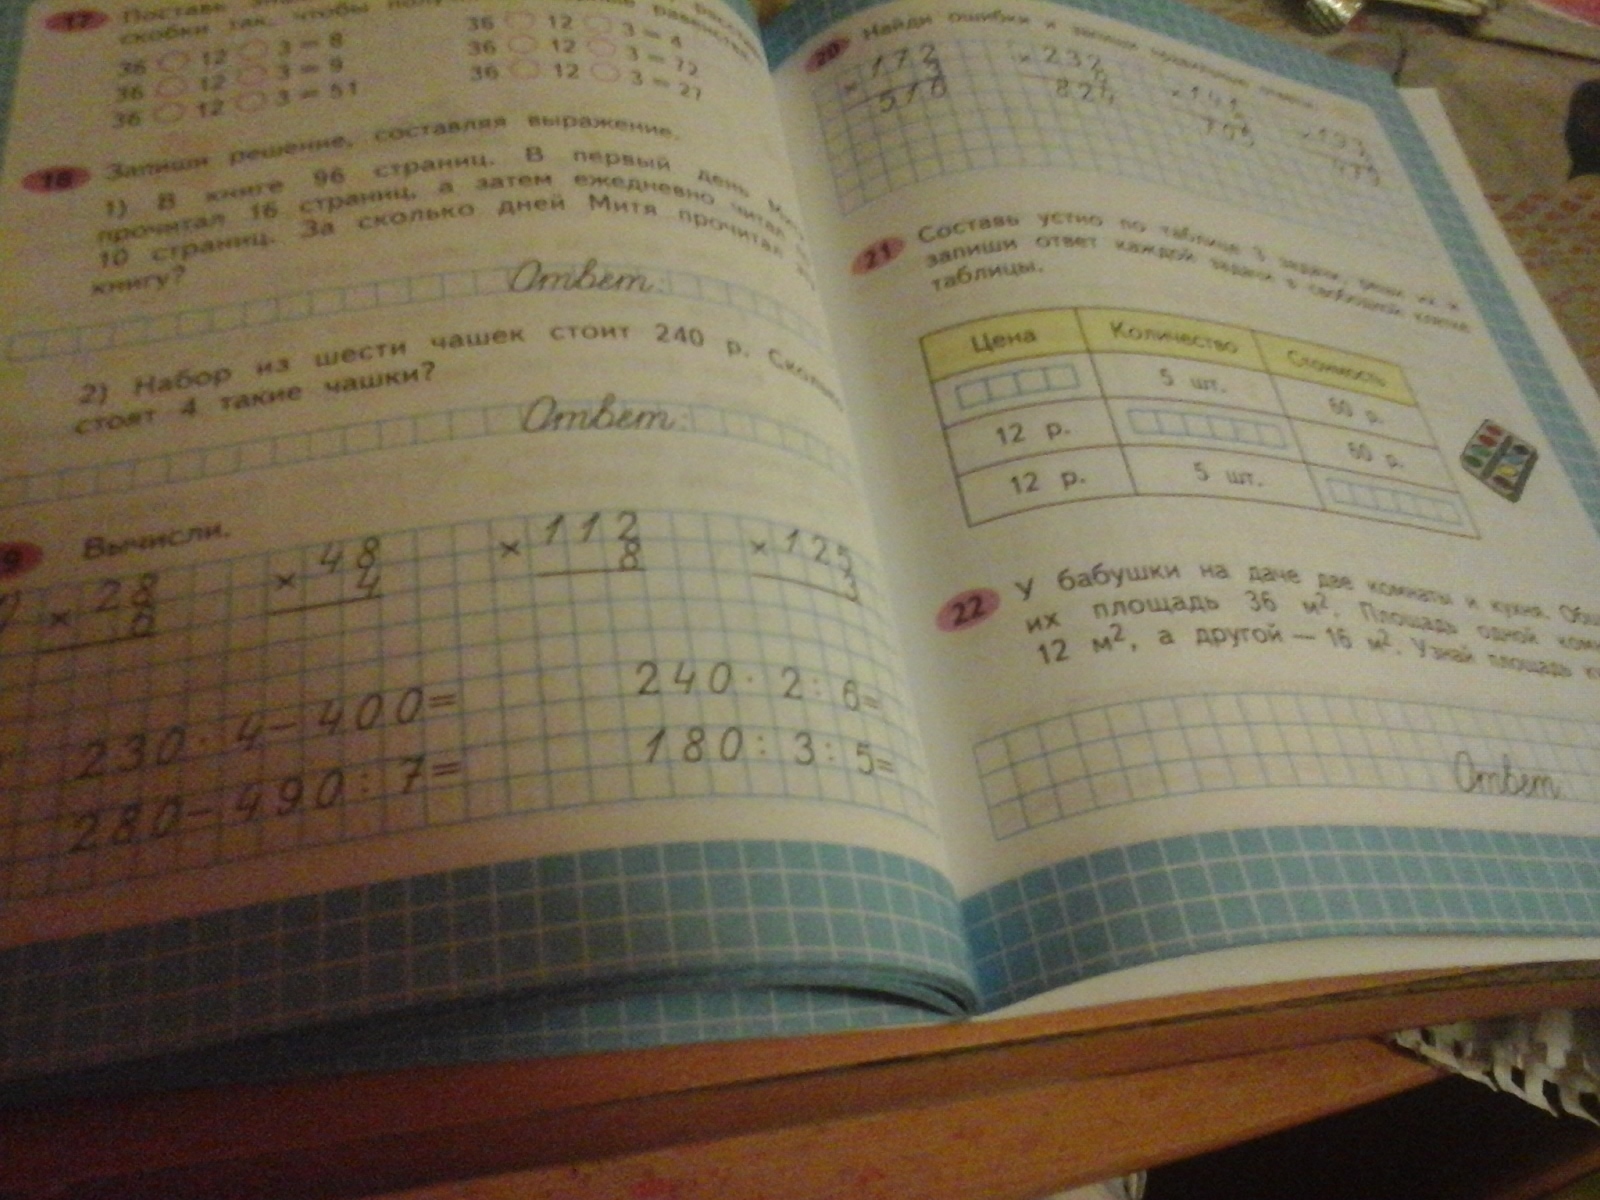 17 Поставь
скобки так, чтобы
36 12 3 = 8
36 12 3 = 9
36 12 3 = 51
36 12 3 = 4
36 12 3 = 72
36 12 3 = 27
18 Запиши решение, составляя выражение.
1) В книге 96 страниц. В первый день Митя
прочитал 16 страниц, а затем ежедневно читал
10 страниц. За сколько дней Митя прочитал
книгу?
Ответ:
2) Набор из шести чашек стоит 240 р. Сколько
стоят 4 такие чашки?
Ответ:
9 Вычисли.
× 28
6
× 48
4
× 112
8
× 125
3
230 · 4 − 400 =
280 − 490 : 7 =
240 · 2 : 6 =
180 : 3 : 5 =
20 Найди ошибки и запиши
× 172
3
516
× 232
824
× 141
705
× 193
479
21 Составь устно по таблице 3 задачи, реши их и
запиши ответ каждой задачи в свободной клетке
таблицы.
Цена Количество Стоимость
5 шт. 60 р.
12 р. 60 р.
12 р. 5 шт.
22 У бабушки на даче две комнаты и кухня.
их площадь 36 м². Площадь одной
12 м², а другой — 16 м². Узнай площадь
Ответ: